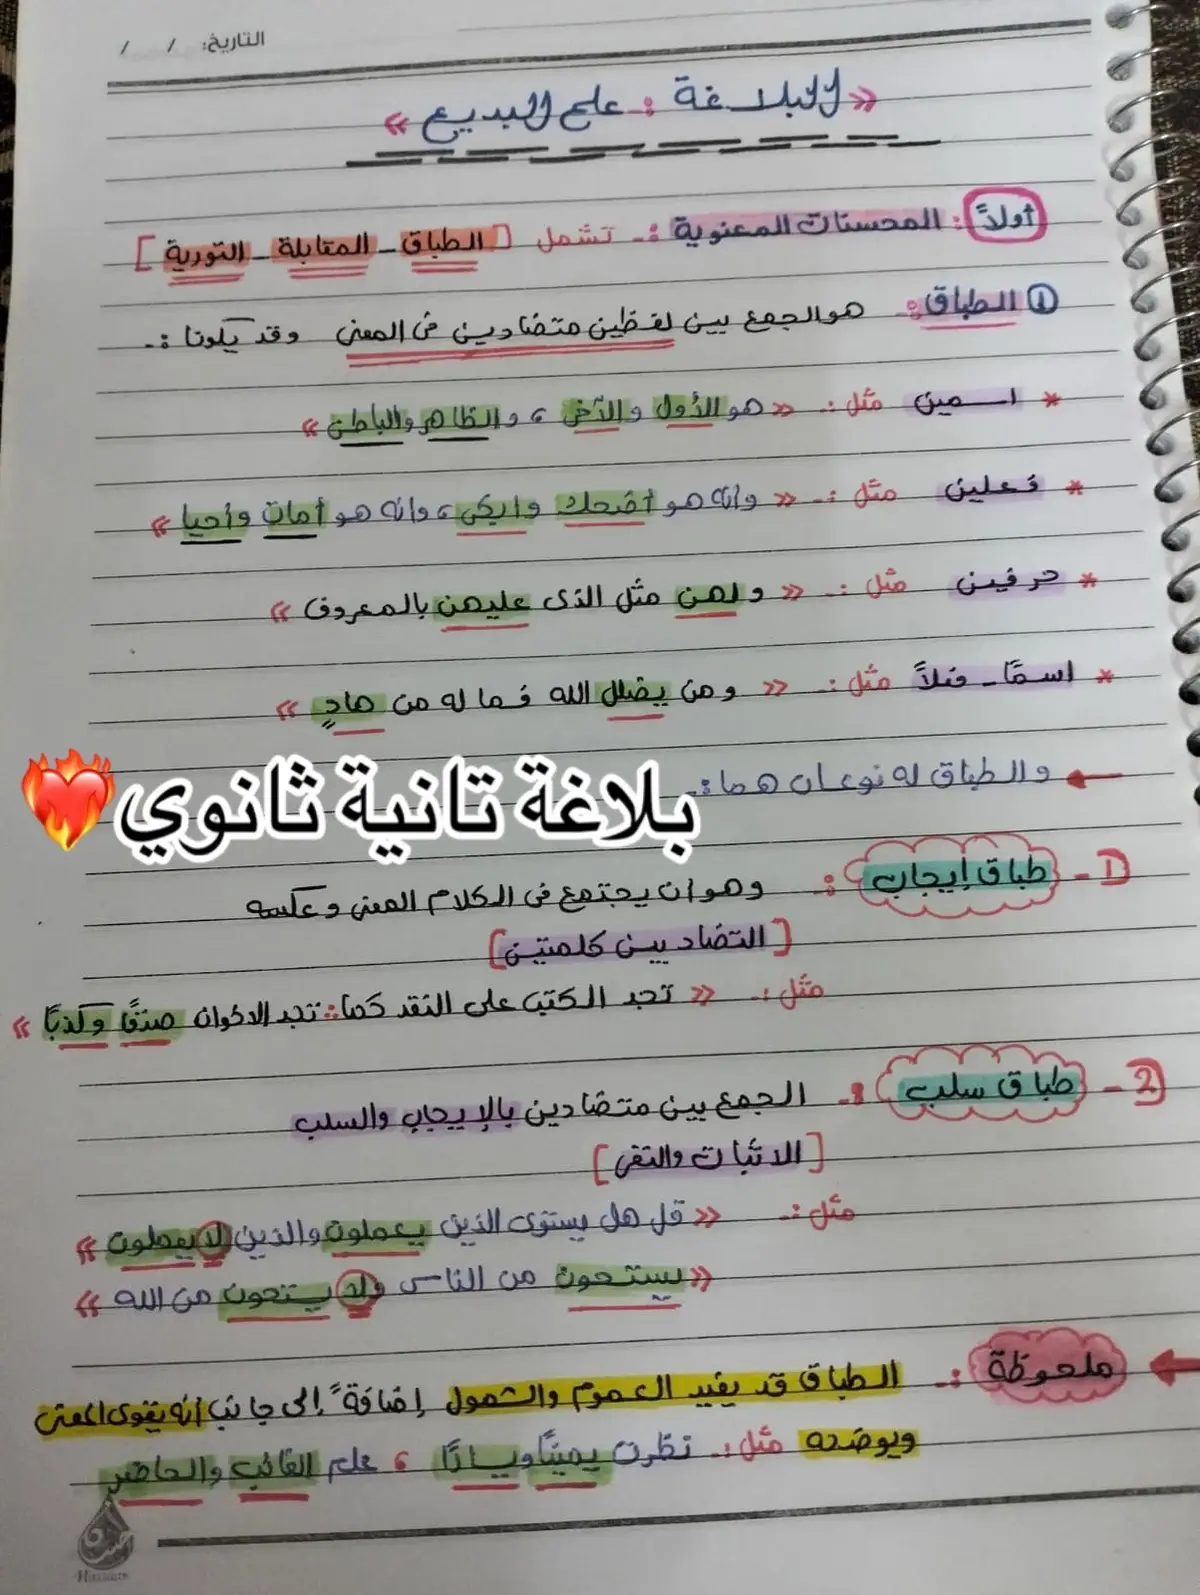 التاريخ: / /
« البلاغة : علم البديع »
أولاً : المحسنات المعنوية :- تشمل [ الطباق - المقابلة - التورية ]
① الطباق :- هو الجمع بين لفظين متضادين فى المعنى وقد يكونا :-
* اسمين مثل :- « هو الأول والآخر ، والظاهر والباطن »
* فعلين مثل :- « وأنه هو أضحك وابكى ، وانه هو أمات وأحيا »
* حرفين مثل :- « ولهن مثل الذى عليهن بالمعروف »
* اسمًا - فعلاً مثل :- « ومن يضلل الله فما له من هادٍ »
والطباق له نوعان هما :-
بلاغة تانية ثانوي❤️‍🔥
1 - طباق إيجاب : وهو ان يجتمع فى الكلام المعنى وعكسه
[ التضاد بين كلمتين ]
مثل :- « تجد الكتب على النقد كما :: تجد الاخوان صدقًا وكذبًا »
2 - طباق سلب :- الجمع بين متضادين بالإيجاب والسلب
[ الاثبات والنفى ]
مثل :- « قل هل يستوى الذين يعملون والذين لا يعملون »
« يستخون من الناس ولا يستخون من الله »
ملحوظة :- الطباق قد يفيد العموم والشمول إضافةً إلى جانب أنه يقوى المعنى
ويوضحه مثل :- نظرت يمينًا ويسارًا ، علم الغائب والحاضر